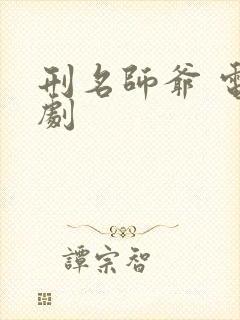 刑名師爺 電
劇
譚宗智